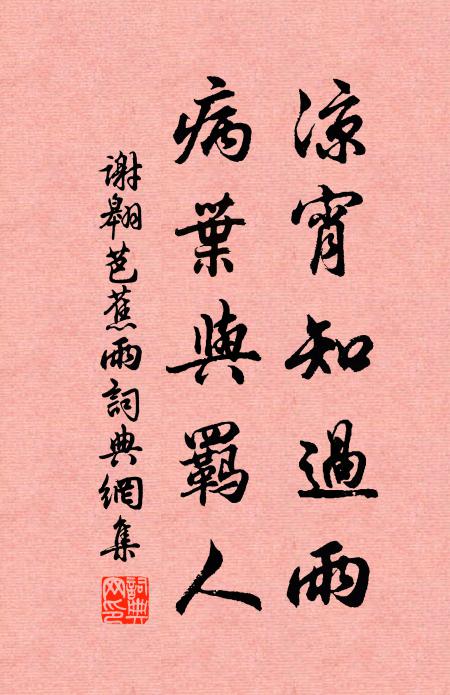 涼宵知過雨
病葉與羈人
謝翱芭蕉雨詞典網集
詞典網印